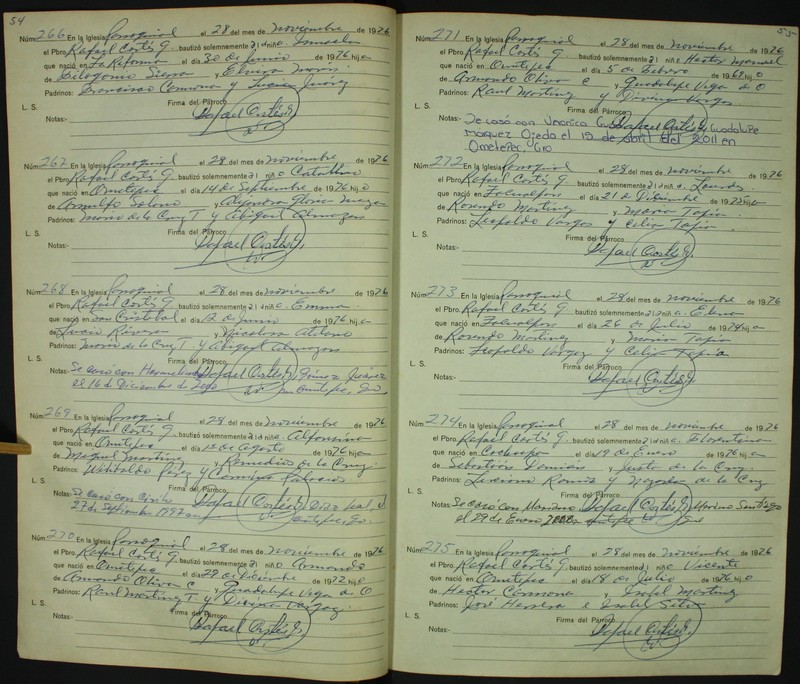 54
Núm. 266 En la Iglesia Parroquial el 28 del mes de Noviembre de 1976
el Pbro. Rafael Cortés G. bautizó solemnemente a l a niñ a
que nació en La Reforma el día 30 de Junio de 1976 hij a
de Filogonio Sierra y Elvira Morán
Padrinos: Francisco Carmona y Lucina Juárez
Firma del Párroco
L. S.
Rafael Cortés G.
Notas:-
Núm. 267 En la Iglesia Parroquial el 28 del mes de Noviembre de 1976
el Pbro. Rafael Cortés G. bautizó solemnemente a l niñ o
que nació en Ometepec el día 14 de Septiembre de 1976 hij o
de Arnulfo Solano y Alejandra Gloria Meza
Padrinos: Mario de la Cruz T. y Abigail Almazán
Firma del Párroco
L. S.
Rafael Cortés G.
Notas:-
Núm. 268 En la Iglesia Parroquial el 28 del mes de Noviembre de 1976
el Pbro. Rafael Cortés G. bautizó solemnemente a l a niñ a Emma
que nació en San Cristobal el día 12 de Junio de 1976 hij a
de Lucio Rivera y Nicolasa
Padrinos: Mario de la Cruz T. y Abigail Almazán
Firma del Párroco
L. S.
Rafael Cortés G.
Notas:- Se casó con Gómez Juárez
el 16 de Diciembre de 2000 en Ometepec, Gro.
Núm. 269 En la Iglesia Parroquial el 28 del mes de Noviembre de 1976
el Pbro. Rafael Cortés G. bautizó solemnemente a l a niñ a Alfonsina
que nació en Ometepec el día 1º de Agosto de 1976 hij a
de Miguel Martínez y Remedios de la Cruz
Padrinos: Witibaldo Pérez y Palacios
Firma del Párroco
L. S.
Rafael Cortés G.
Notas:- Se casó con Díaz Leal, el
27 de Septiembre 1997 en Ometepec, Gro.
Núm. 270 En la Iglesia Parroquial el 28 del mes de Noviembre de 1976
el Pbro. Rafael Cortés G. bautizó solemnemente a l niñ o Armando
que nació en Ometepec el día 29 de Diciembre de 1972 hij o
de Armando Oliva C y Guadalupe Vega de O
Padrinos: Raul Martínez T y Divina Vargas
Firma del Párroco
L. S.
Rafael Cortés G.
Notas:-
55
Núm. 271 En la Iglesia Parroquial el 28 del mes de Noviembre de 1976
el Pbro. Rafael Cortés G. bautizó solemnemente a l niñ o Hector Manuel
que nació en Ometepec el día 5 de Febrero de 1968 hij o
de Armando Oliva C y Guadalupe Vega de O
Padrinos: Raul Martínez y Divina Vargas
Firma del Párroco
L. S.
Rafael Cortés G.
Notas:- Se casó con Verónica Guadalupe
Márquez Ojeda el 15 de abril del 2011 en
Ometepec, Gro
Núm. 272 En la Iglesia Parroquial el 28 del mes de Noviembre de 1976
el Pbro. Rafael Cortés G. bautizó solemnemente a l a niñ a Lourdes
que nació en el día 21 de Diciembre de 1972 hij a
de Rosendo Martínez y María Tapia
Padrinos: Leopoldo Vargas y Celia Tapia
Firma del Párroco
L. S.
Rafael Cortés G.
Notas:-
Núm. 273 En la Iglesia Parroquial el 28 del mes de Noviembre de 1976
el Pbro. Rafael Cortés G. bautizó solemnemente a l a niñ a Elena
que nació en el día 26 de Julio de 1974 hij a
de Rosendo Martínez y María Tapia
Padrinos: Leopoldo Vargas y Celia Tapia
Firma del Párroco
L. S.
Rafael Cortés G.
Notas:-
Núm. 274 En la Iglesia Parroquial el 28 del mes de Noviembre de 1976
el Pbro. Rafael Cortés G. bautizó solemnemente a l a niñ a Florentina
que nació en Cochoapa el día 19 de Enero de 1976 hij a
de Sebastián Damián y Justa de la Cruz
Padrinos: Ramírez y de la Cruz
Firma del Párroco
L. S.
Rafael Cortés G.
Notas:- Se casó con Mariano Moreno Santiago
el 29 de Enero
Núm. 275 En la Iglesia Parroquial el 28 del mes de Noviembre de 1976
el Pbro. Rafael Cortés G. bautizó solemnemente a l niñ o Vicente
que nació en Ometepec el día 18 de Julio de 1976 hij o
de Hector Carmona y Isabel Martínez
Padrinos: José Herrera e Isabel Silva
Firma del Párroco
L. S.
Rafael Cortés G.
Notas:-